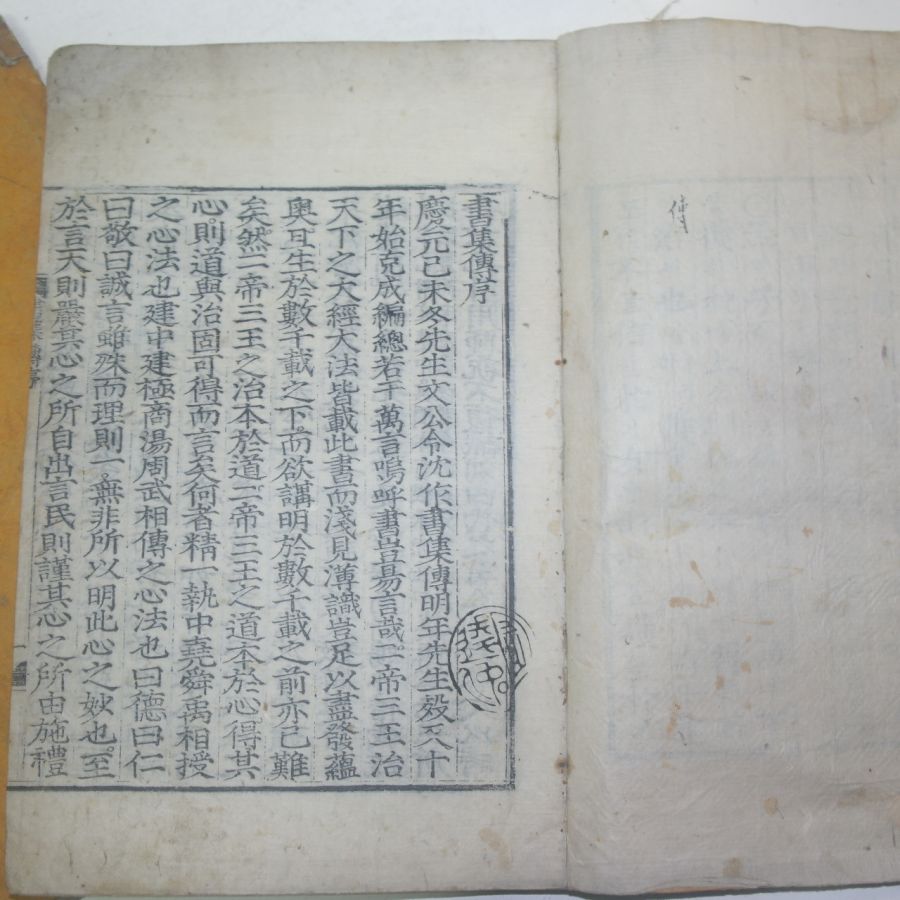 傳
書集傳序
慶元己未冬先生文公令沈作書集傳明年先生歿又十
年始克成編總若干萬言嗚呼書豈易言哉二帝三王治
天下之大經大法皆載此書而淺見薄識豈足以盡發蘊
奧且生於數千載之下而欲講明於數千載之前亦已難
矣然二帝三王之治本於道二帝三王之道本於心得其
心則道與治固可得而言矣何者精一執中堯舜禹相授
之心法也建中建極商湯周武相傳之心法也曰德曰仁
曰敬曰誠言雖殊而理則一無非所以明此心之妙也至
於言天則嚴其心之所自出言民則謹其心之所由施禮
書集傳序